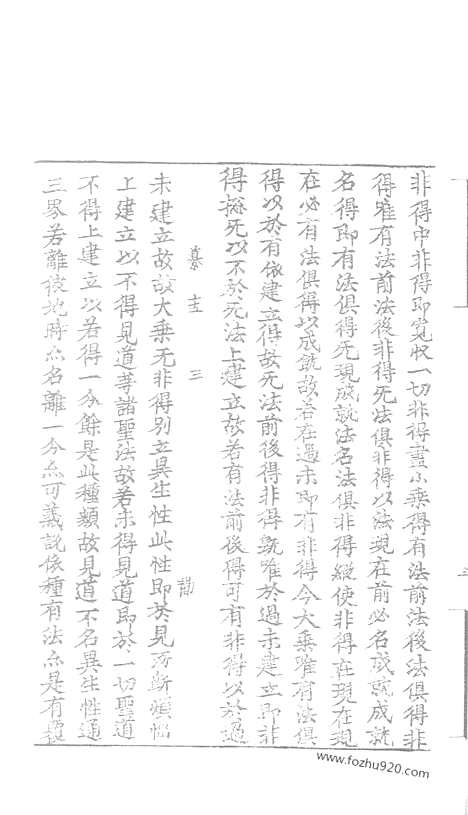 非得中非得即寬收一切非得盡小乘得有法前法後法俱得非
得唯有法前法後非得无法俱非得以法現在前必名成就成就
名得即有法俱得无現成就法名法俱非得縱使非得在現在現
在必有法俱得以成就故若在過未即有非得今大乘唯有法俱
得以於有依建立得故无法前後得非得既唯於過未建立即非
得擬死以不於无法上建立故若有法前後得可有非得以於過
未建立故故大乘无非得別立異生性此性即於見所斷煩惱
上建立以不得見道等諸聖法故若未得見道即於一切聖道
不得上建立以若得一分餘是此種類故見道不名異生性通
三界若離彼地時亦名離一分亦可義說依種有法亦是有覆
三
www.fozhu920.com